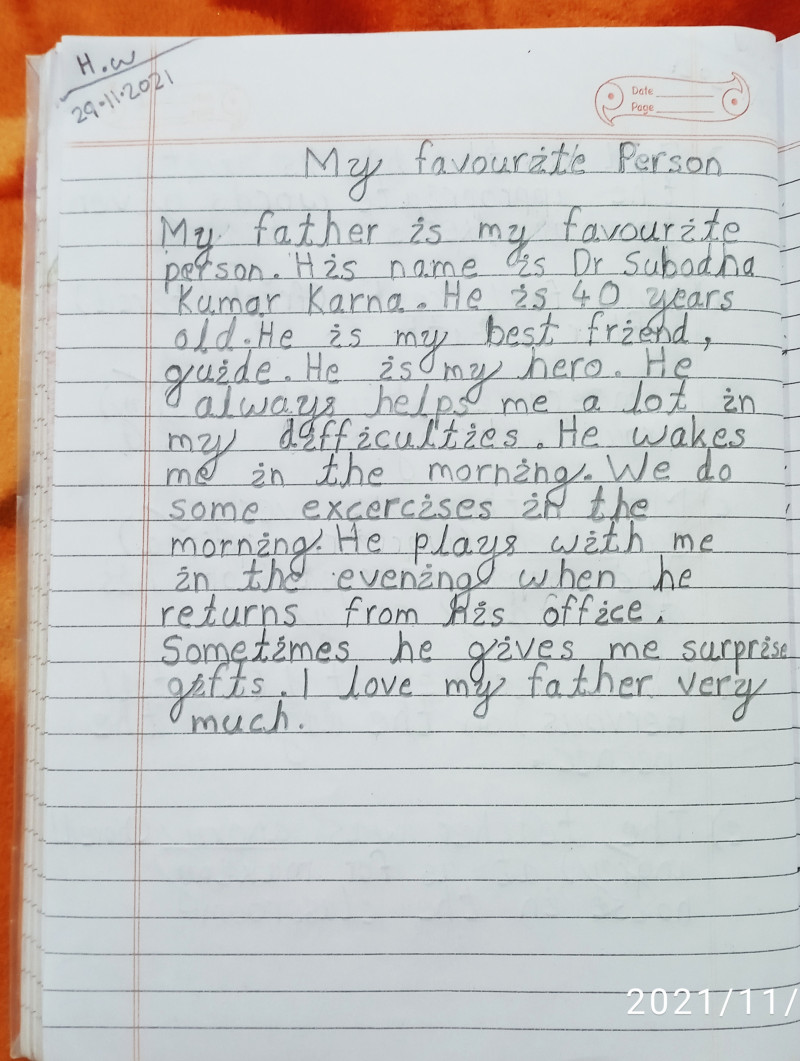 H.w
29.11.2021
Date
Page
My favourite Person
My father is my favourite
person. His name is Dr Subodha
Kumar Karna. He is 40 years
old. He is my best friend,
guide. He is my hero. He
always helps me a lot in
my difficulties. He wakes
me in the morning. We do
some excercises in the
morning. He plays with me
in the evening when he
returns from his office.
Sometimes he gives me surprise
gifts. I love my father very
much.
2021/11/